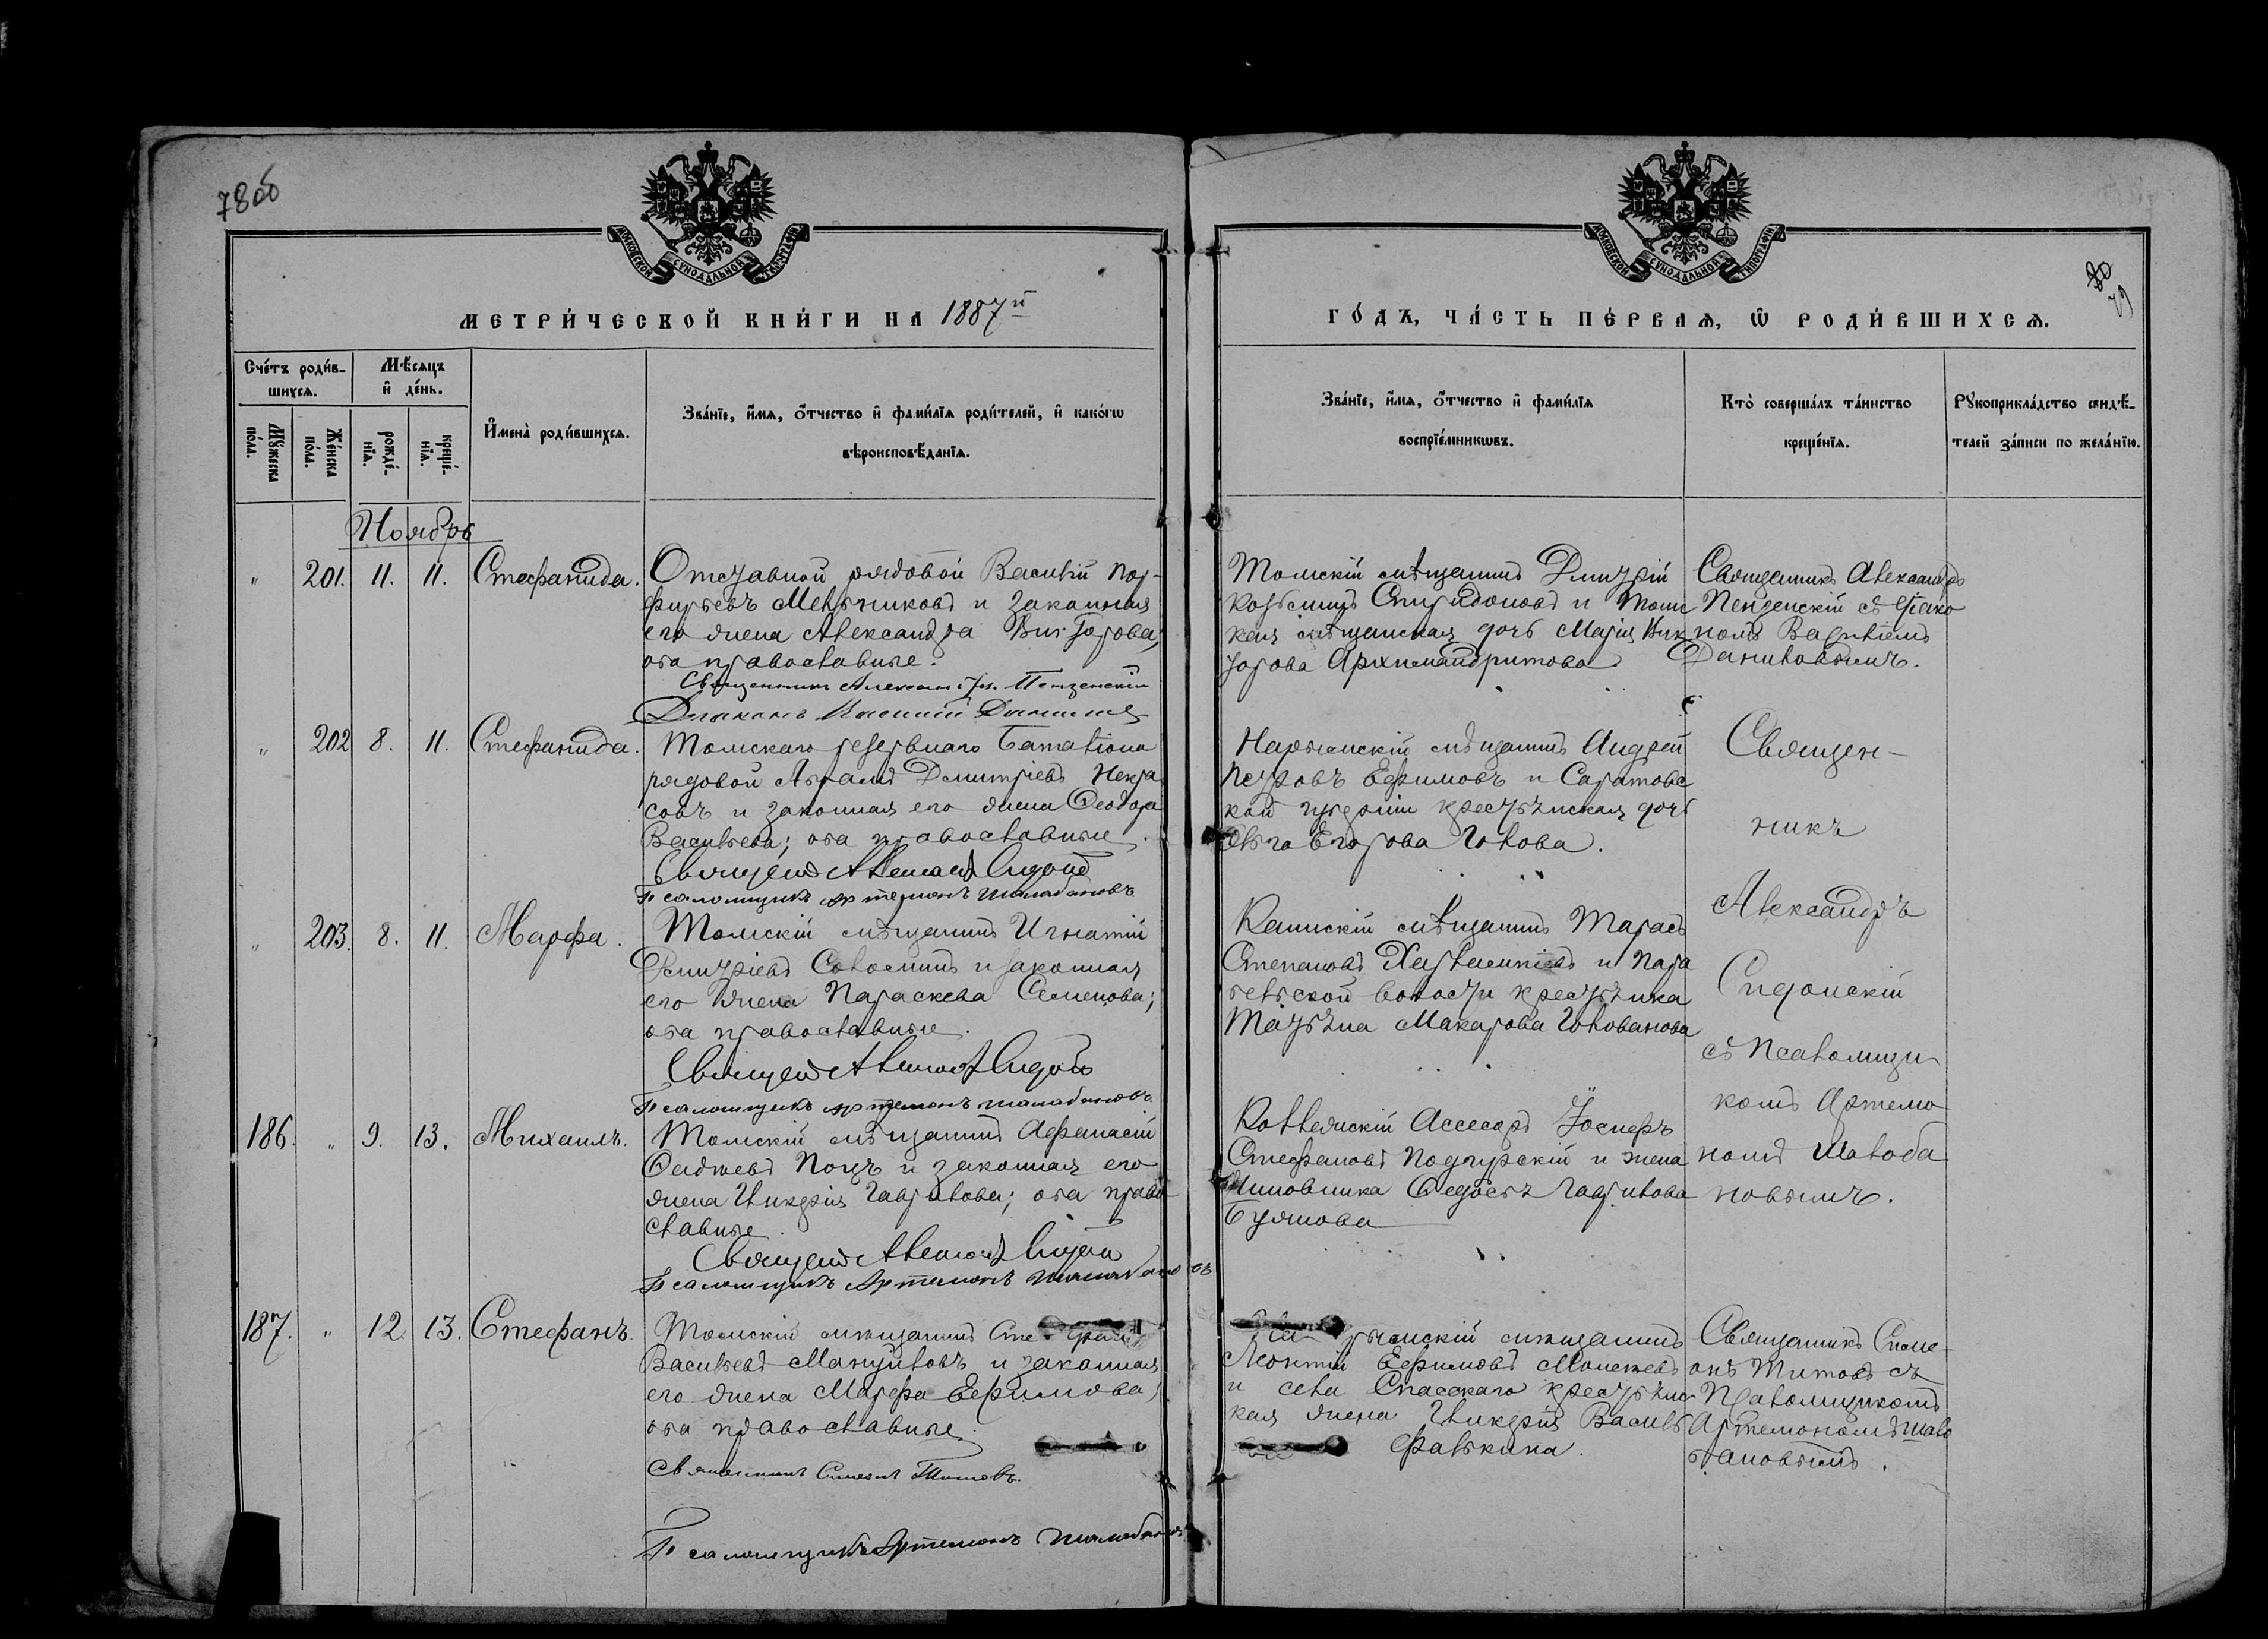 78об
МОСКОВСКОЙ СУНОДАЛЬНОЙ ТИПОГРАФІИ
МЕТРИ́ЧЕСКОЙ КНИ́ГИ НА 1887й
Сче́тъ роди́в-
шихся.
Мѣ́сяцъ
и҆ де́нь.
Мꙋ́жеска
по́ла.
Же́нска
по́ла.
рожде́-
нїя.
креще́-
нїя.
И҆мена̀ роди́вшихся.
Зва́нїе, и҆́мя, о҆́тчество и҆ фами́лїя роди́телей, и҆ како́гѡ
вѣроисповѣ́данїя.
Ноябрь
" 201. 11. 11. Стефанида. Отставной рядовой Василій Пор-
фирьевъ Мельниковъ и законная
его жена Александра Викторова,
оба православные.
Священникъ Александръ Пензенскій
Діаконъ Василій Данилов
" 202 8. 11. Стефанида. Томскаго резервнаго баталіона
рядовой Авраамъ Дмитріевъ Некра
совъ и законная его жена Ѳеодора
Васильева; оба православные.
Священ Александ Сидон
Псаломщикъ Артемонъ Шалобановъ
" 203. 8. 11. Марфа. Томскій мѣщанинъ Игнатій
Дмитріевъ Соломинъ и законная
его жена Параскева Семенова;
оба православные.
Священ Александ Сидон
Псаломщикъ Артемонъ Шалобановъ
186. " 9. 13. Михаилъ. Томскій мѣщанинъ Афанасій
Поцъ и законная его
жена Гликерія Гаврилова; оба право
славные.
Священ Александ Сидон
Псаломщикъ Артемонъ Шалобановъ
187. " 12 13. Стефанъ. Томскій мѣщанинъ
Васильевъ Мануйловъ и законная
его жена Марфа Ефимова;
оба православные.
Священникъ Симеонъ Титовъ.
Псаломщикъ Артемонъ Шалобановъ
МОСКОВСКОЙ СУНОДАЛЬНОЙ ТИПОГРАФІИ
80
79
ГО́ДЪ, ЧА́СТЬ ПЕ́РВАЯ, Ѡ҆ РОДИ́ВШИХСЯ.
Зва́нїе, и҆́мя, о҆́тчество и҆ фами́лїя
воспрїе́мникѡвъ.
Кто̀ соверша́лъ та́инство
креще́нїя.
Рꙋкоприкла́дство свидѣ́-
телей за́писи по жела́нїю.
Томскій мѣщанинъ Дмитрій
Козьминъ Спиридоновъ и Томс
кая мѣщанская дочь Марія Вик
торова Архимандритова.
Священникъ Александръ
Пензенскій съ діако
номъ Василіемъ
Даниловымъ.
Нарымскій мѣщанинъ Андрей
Петровъ Ефимовъ и Саратовс
кой губерніи крестьянская дочь
Ольга Егорова Зотова.
Каинскій мѣщанинъ Тарасъ
Степановъ и Пара
бельской волости крестьянка
Татьяна Макарова Голованова
Коллежскій Ассесоръ Іосифъ
Стефановъ Подгурскій и жена
Чиновника Ѳедосья Гаврилова
Буянова
Священ-
никъ
Александръ
Сидонскій
съ Псаломщи
комъ Артемо
номъ Шалоба
новымъ.
мѣщанинъ
Леонтій Ефимовъ
и села Спасскаго крестьянс
кая жена Гликерія Василь
Фалькина.
Священникъ Симе-
онъ Титовъ съ
Псаломщикомъ
Артемономъ Шало
бановымъ.